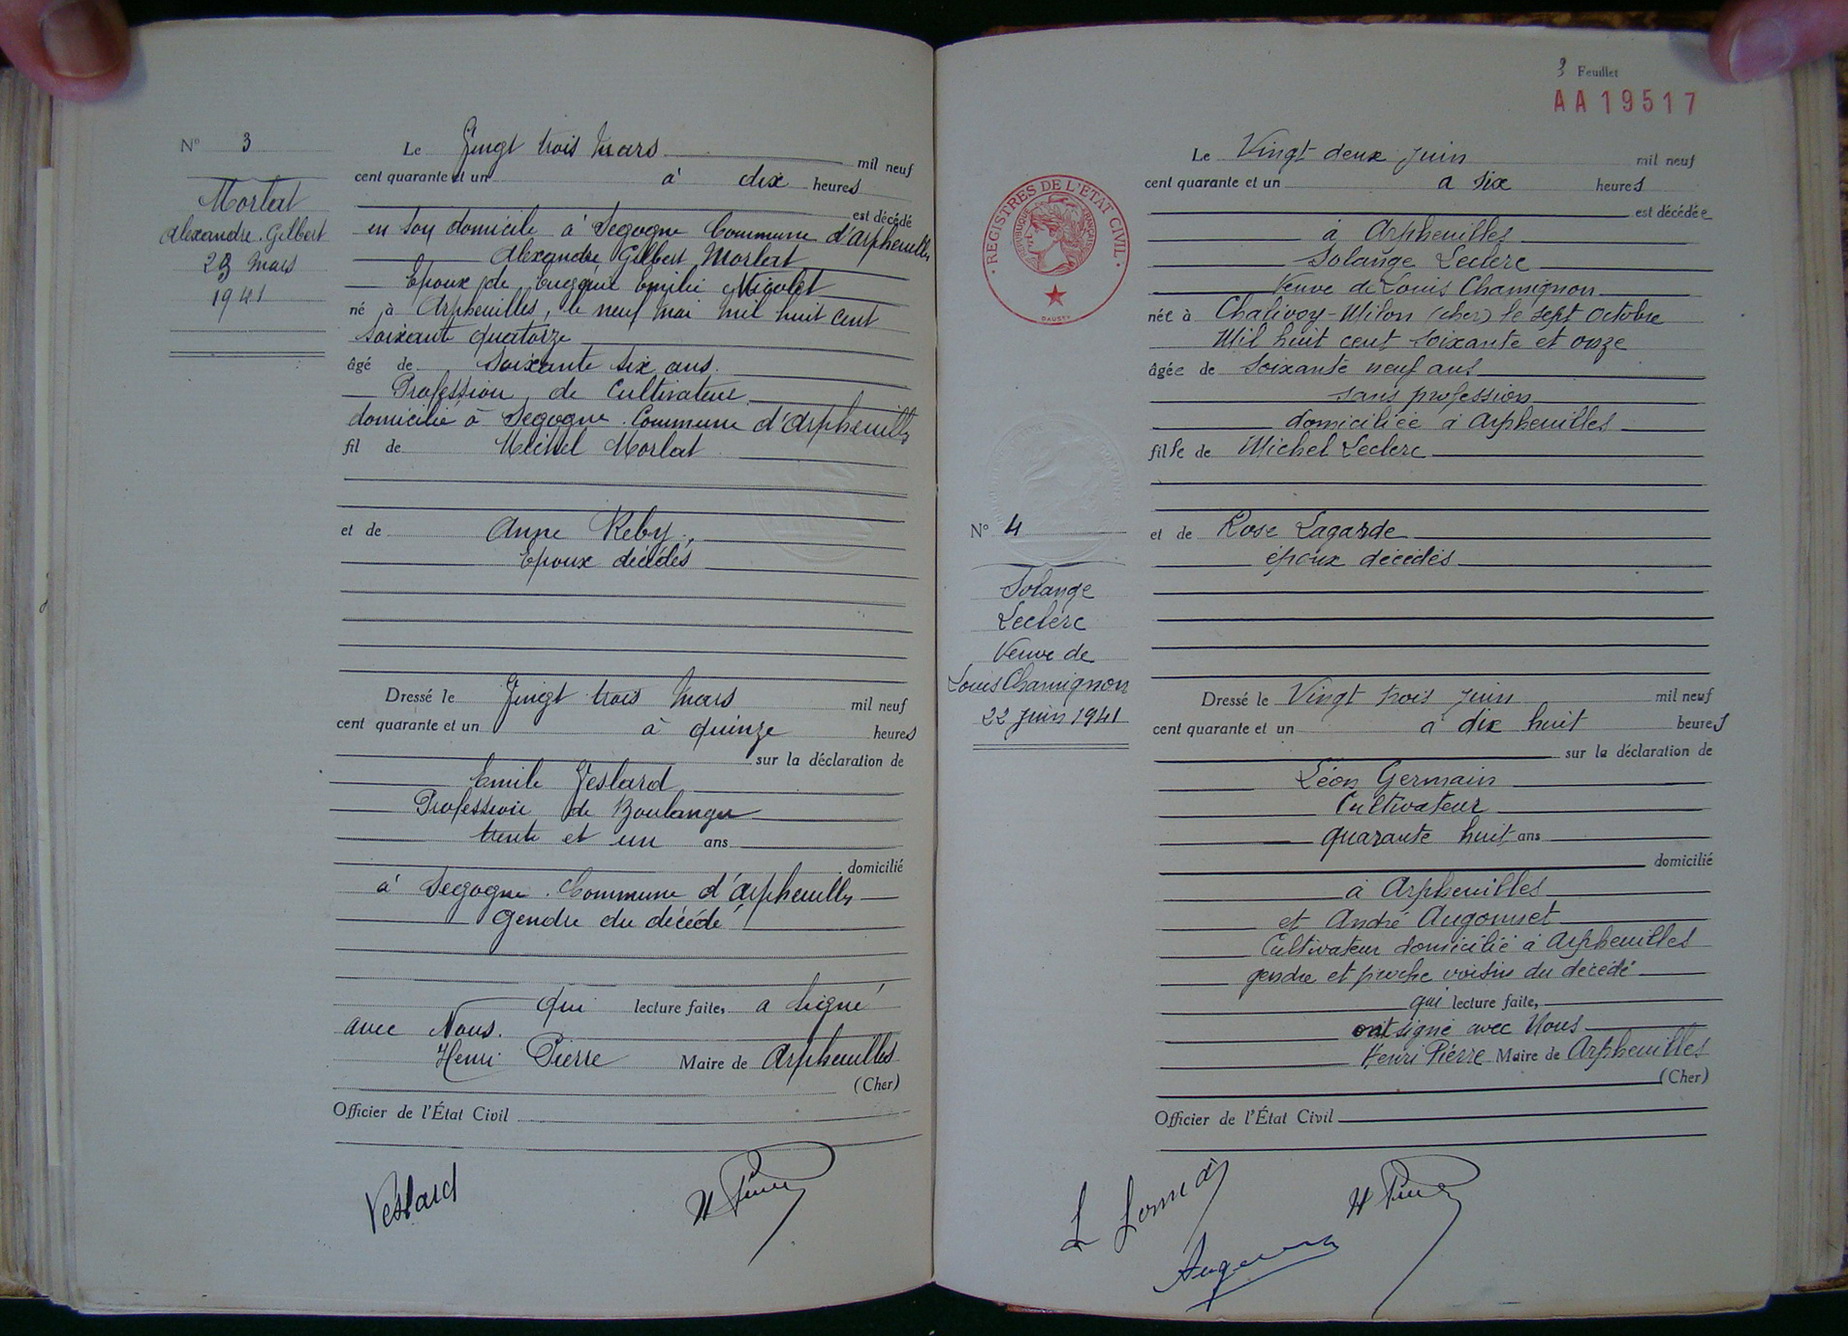 N° 3
Morlat
Alexandre. Gilbert
23 Mars
1941
Le Vingt trois Mars mil neuf
cent quarante et un à dix heures
est décédé
en son domicile à Segogne Commune d'Arpheuilles
Alexandre Gilbert Morlat
Epoux de Eugénie Emilie Nicolet
né à Arpheuilles, le neuf Mai Mil huit cent
soixante quatorze
âgé de Soixante six ans.
Profession de Cultivateur
domicilié à Segogne. Commune d'Arpheuilles
fil de Michel Morlat
et de Anne Reby,
Epoux décédés
Dressé le Vingt trois Mars mil neuf
cent quarante et un à quinze heures
sur la déclaration de
Emile Veslard
Profession de Boulanger
trente et un ans
domicilié
à Segogne. Commune d'Arpheuilles
Gendre du décédé
qui lecture faite, a signé
avec Nous.
Henri Pierre Maire de Arpheuilles
(Cher)
Officier de l'État Civil
Veslard
H Pierre
3 Feuillet
AA19517
REGISTRES DE L'ÉTAT CIVIL
RÉPUBLIQUE FRANÇAISE
DAUSSY
N° 4
Solange
Leclerc
Veuve de
Louis Chamignon
22 Juin 1941
Le Vingt deux Juin mil neuf
cent quarante et un a six heures
est décédée
à Arpheuilles
Solange Leclerc
Veuve de Louis Chamignon
née à Chalivoy-Milon (cher) le sept Octobre
Mil huit cent soixante et onze
âgée de Soixante neuf ans
sans profession
domiciliée à Arpheuilles
fille de Michel Leclerc
et de Rose Lagarde
époux décédés
Dressé le Vingt trois Juin mil neuf
cent quarante et un à dix huit heures
sur la déclaration de
Léon Germain
Cultivateur
quarante huit ans
domicilié
à Arpheuilles
et André Augonnet
Cultivateur domicilié à Arpheuilles
gendre et proche voisin du décédé
qui lecture faite,
ont signé avec Nous
Henri Pierre Maire de Arpheuilles
(Cher)
Officier de l'État Civil
H Pierre